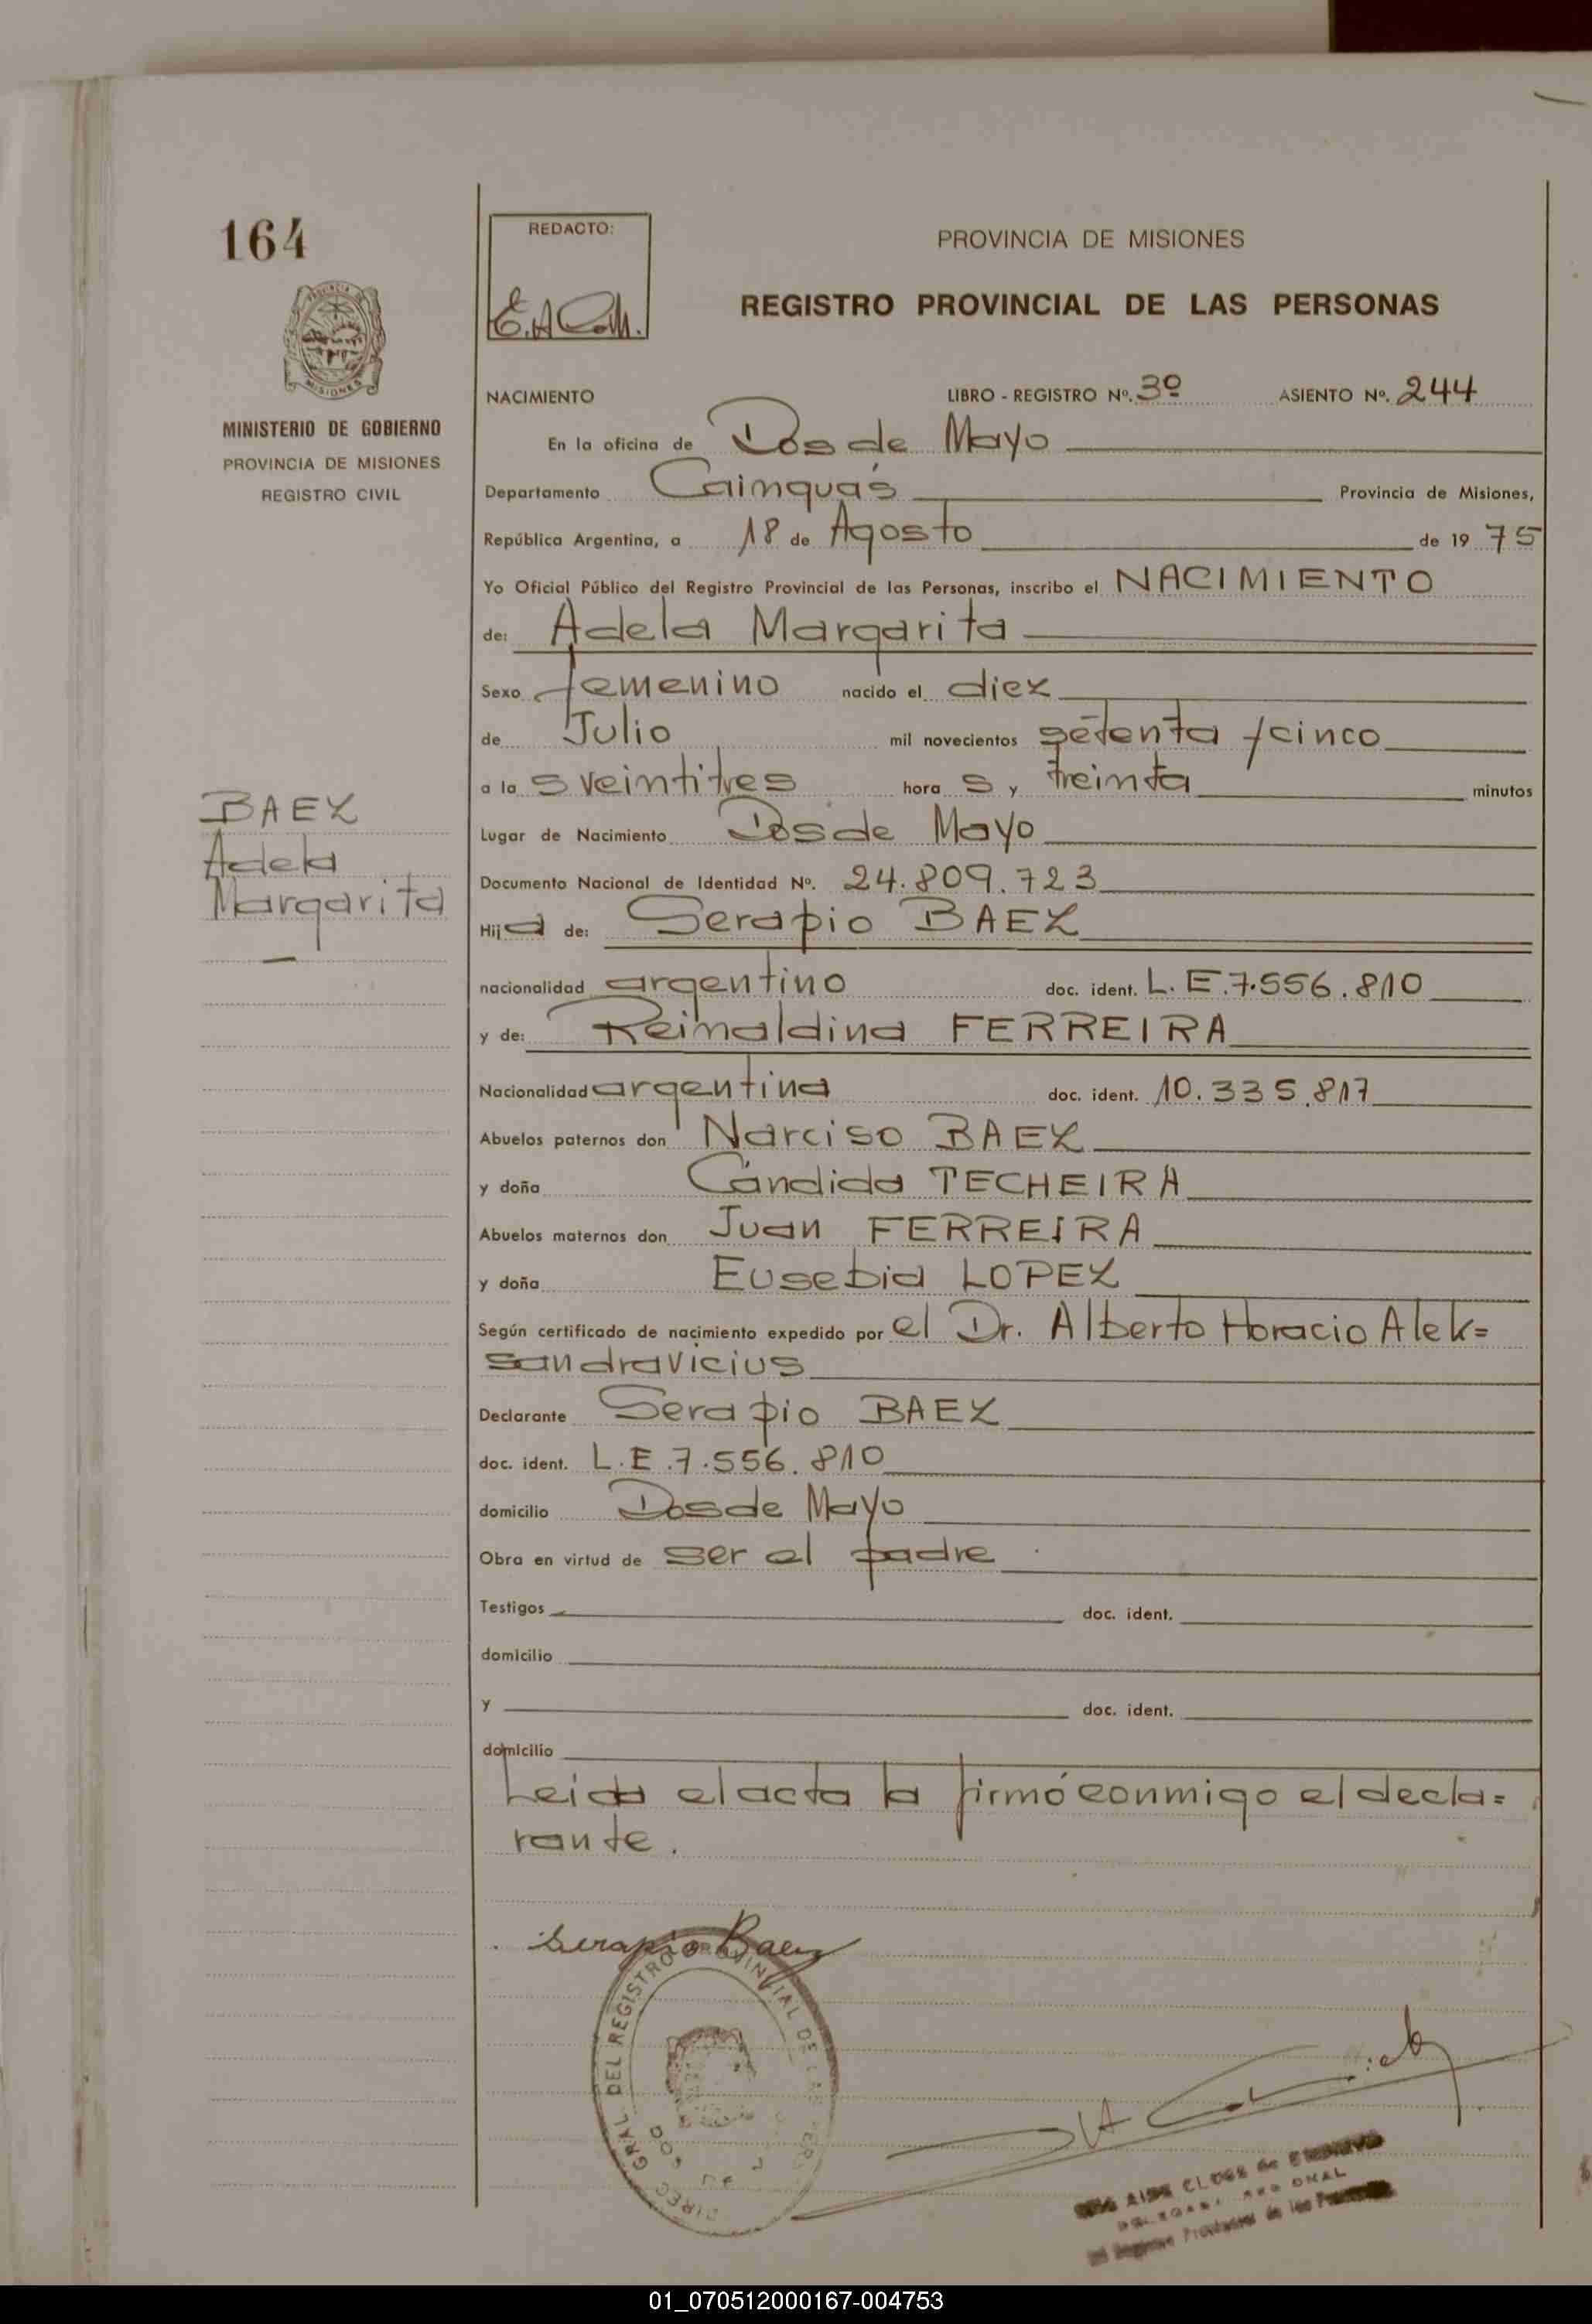 164
REDACTO:
PROVINCIA DE MISIONES
REGISTRO PROVINCIAL DE LAS PERSONAS
MINISTERIO DE GOBIERNO
PROVINCIA DE MISIONES
REGISTRO CIVIL
NACIMIENTO LIBRO - REGISTRO Nº. 3º ASIENTO Nº. 244
En la oficina de Dos de Mayo
Departamento Cainguás Provincia de Misiones,
República Argentina, a 18 de Agosto de 19 75
Yo Oficial Público del Registro Provincial de las Personas, inscribo el NACIMIENTO
de: Adela Margarita
Sexo femenino nacido el diez
de Julio mil novecientos setenta y cinco
a la s veintitres hora s y treinta minutos
BAEZ
Adela
Margarita
Lugar de Nacimiento Dos de Mayo
Documento Nacional de Identidad Nº. 24.809.723
Hija de: Serapio BAEZ
nacionalidad argentino doc. ident. L.E.7.556.810
y de: Reinaldina FERREIRA
Nacionalidad argentina doc. ident. 10.335.817
Abuelos paternos don Narciso BAEZ
y doña Cándida TECHEIRA
Abuelos maternos don Juan FERREIRA
y doña Eusebia LOPEZ
Según certificado de nacimiento expedido por el Dr. Alberto Horacio Alek=
sandravicius
Declarante Serapio BAEZ
doc. ident. L.E.7.556.810
domicilio Dos de Mayo
Obra en virtud de ser el padre
Testigos doc. ident.
domicilio
y doc. ident.
domicilio
Leida el acta la firmó conmigo el decla=
rante.
Serapio Baez
DIREC. GRAL. DEL REGISTRO PROVINCIAL DE LAS
01_070512000167-004753